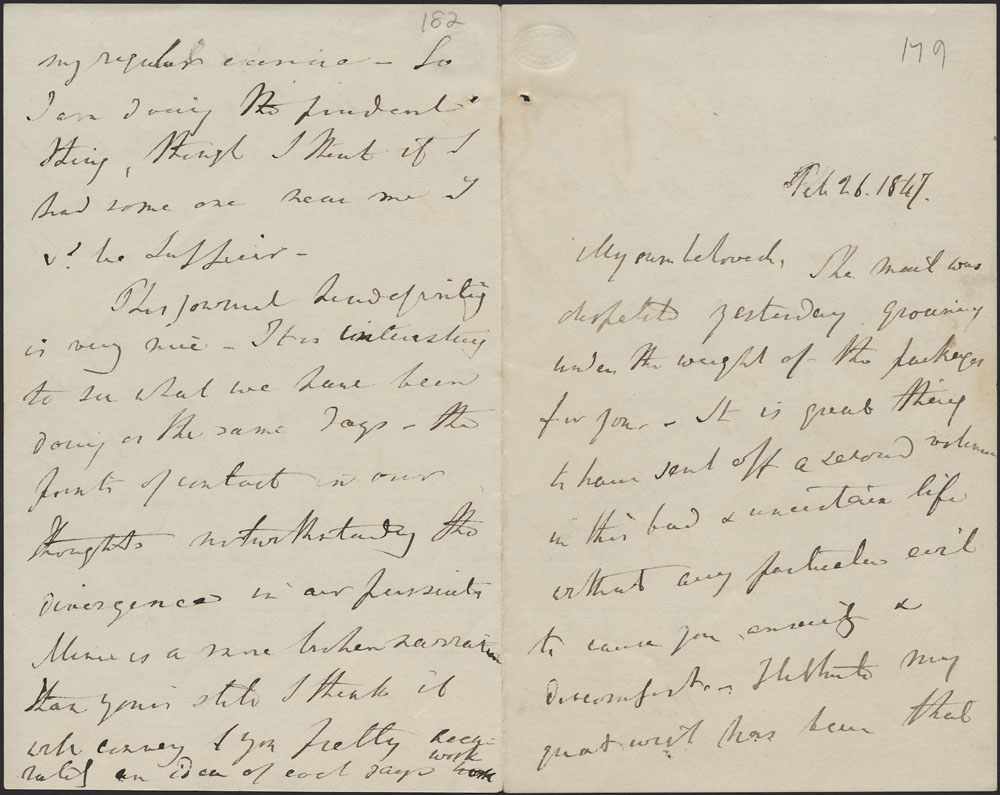 182
my regular exercise – So
I am doing the prudent
thing, though I think if I
had some one near me I
shd. be Lufficir –
This journal send
is very nice – It is interesting
to see what we have been
doing on the same days – the
points of contact in our
thoughts notwithstanding the
divergence in our pursuits
Mine is a more broken narration
than yours still I think it
will convey to you pretty accu-
rately an idea of each days work
179
Feb 26. 1847.
My own beloved, The mail was
yesterday groaning
under the weight of the packages
for you. – It is great thing
to have sent off a second volume
in this bad & uncertain life
without any particular evil
to cause you anxiety &
discomfort. – Hitherto my
great wish has been that